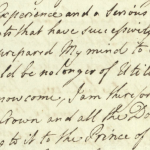 Experience and a serious
to that have successively
prepared My mind to
ld be no longer of Utili
now come, I am therefor
Crown and all the Do
to it to the Prince of